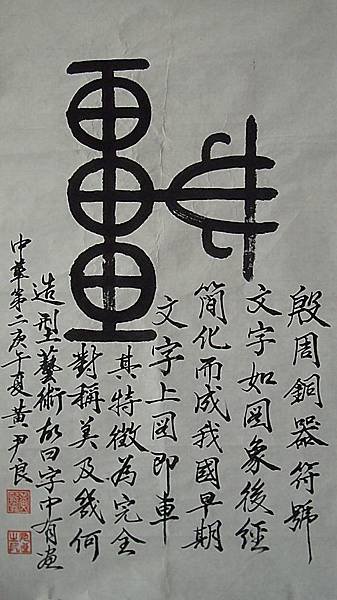 殷周銅器符號
文字如圖象後經
簡化而成我國早期
文字上圖即車
其特徵為完全
對稱美及幾何
造型藝術故曰字中有畫
中華第二庚午夏黃尹良